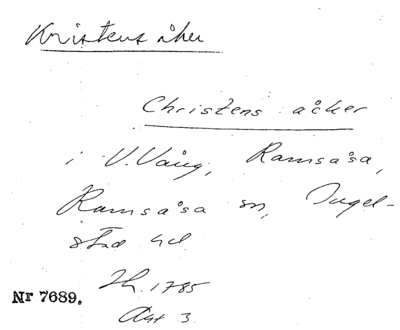 Kristens åker
Christens acker
i V. Vång, Ramsåsa,
Ramsåsa sn, Ingel-
stad hd.
Nr 7689.
Akt 3.